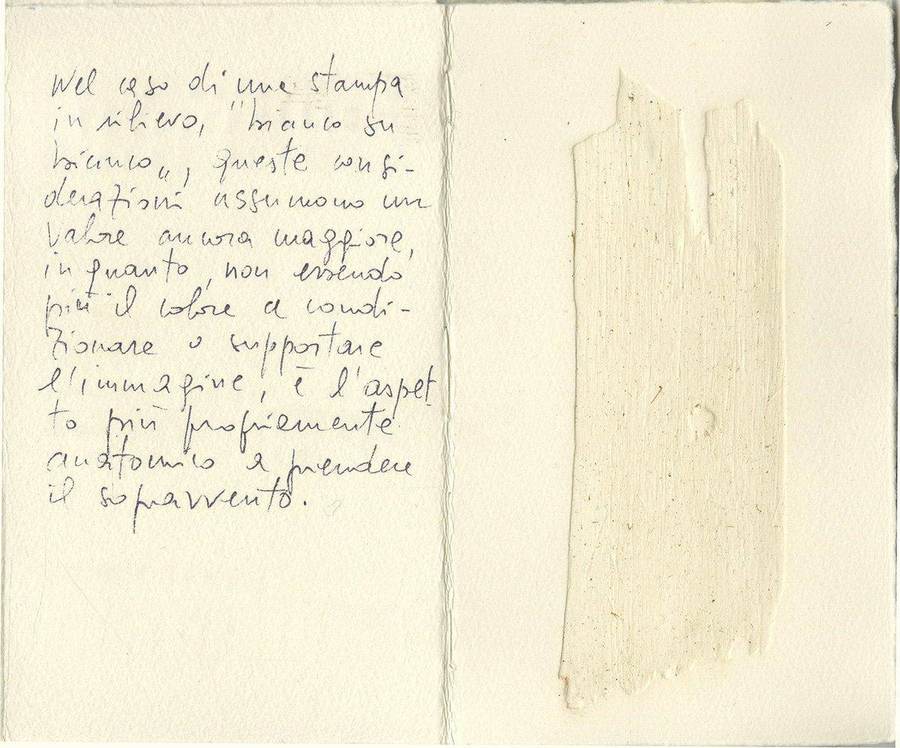 Nel caso di una stampa
in rilievo, "bianco su
bianco„, queste consi-
derazioni assumono un
valore ancora maggiore,
in quanto, non essendo
più il colore a condi-
zionare o supportare
l'immagine, è l'aspet
to più propriamente
anatomico a prendere
il sopravvento.